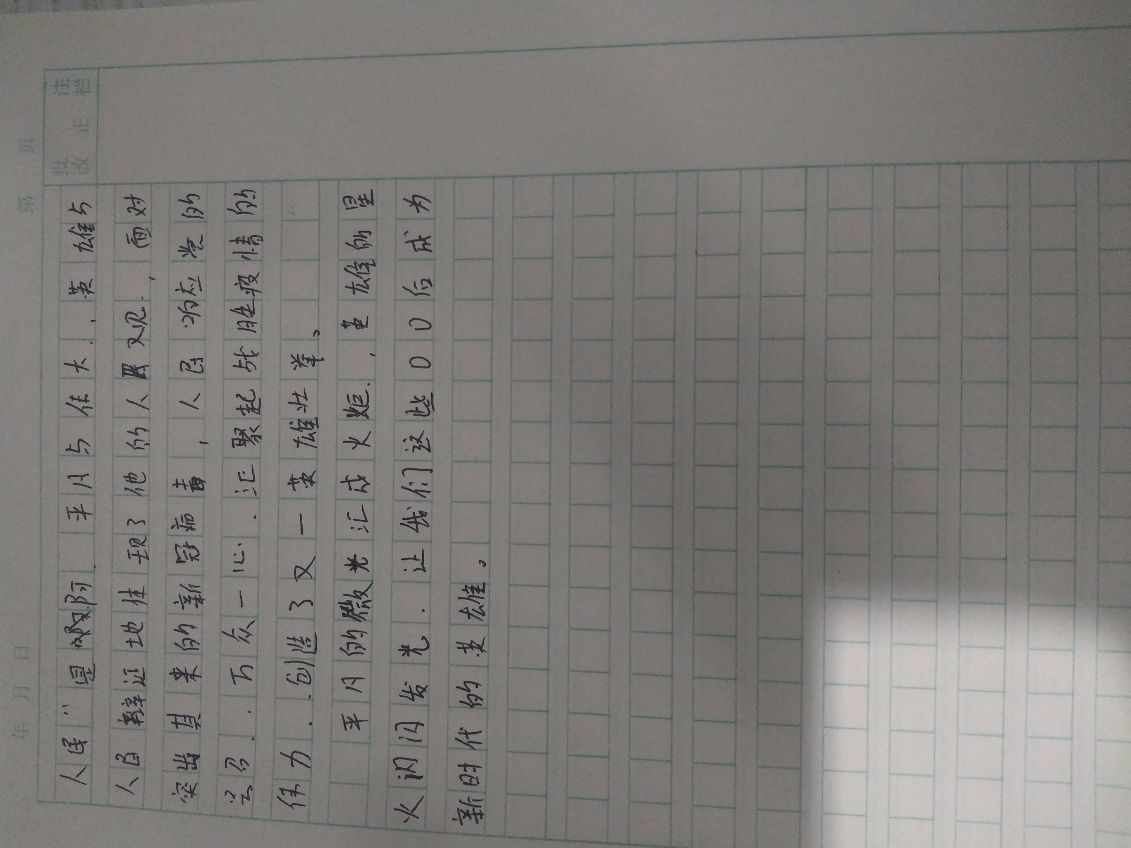 年 月 日 第 页
批注
改正栏
人民"是 平凡与伟大、英雄与
人民辩证地体现了他的人民观，面对
突出其来的新冠病毒，人民响应党的
号召、万众一心、汇聚起战胜疫情的
伟力、创造了又一英雄壮举。
平凡的微光汇成火炬，英雄的星
火闪闪发光、让我们这些00后成为
新时代的英雄。